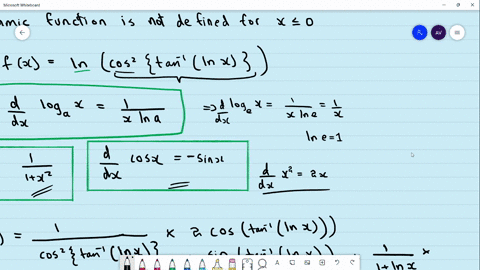 Microsoft Whiteboard
amic function is not defined for x ≤ 0
AV
f(x) = ln (cos² {tan⁻¹ (ln x)})
d/dx log_a x = 1/(x ln a)
⇒ d/dx log_e x = 1/(x ln e) = 1/x
ln e = 1
1/(1+x²)
d/dx cos x = -sin x
d/dx x² = 2x
) = 1/(cos² {tan⁻¹ (ln x)} × 2 cos (tan⁻¹ (ln x)))
sin (tan⁻¹ (ln x))
1/(1+ln x) ×